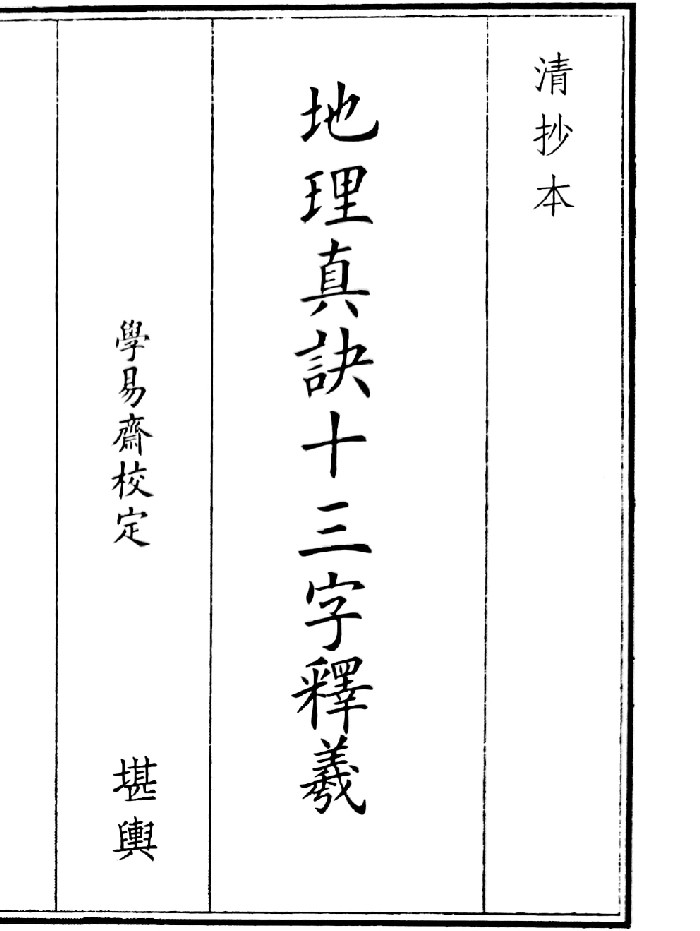 清抄本
地理真訣十三字釋羲
學易齋校定
堪輿